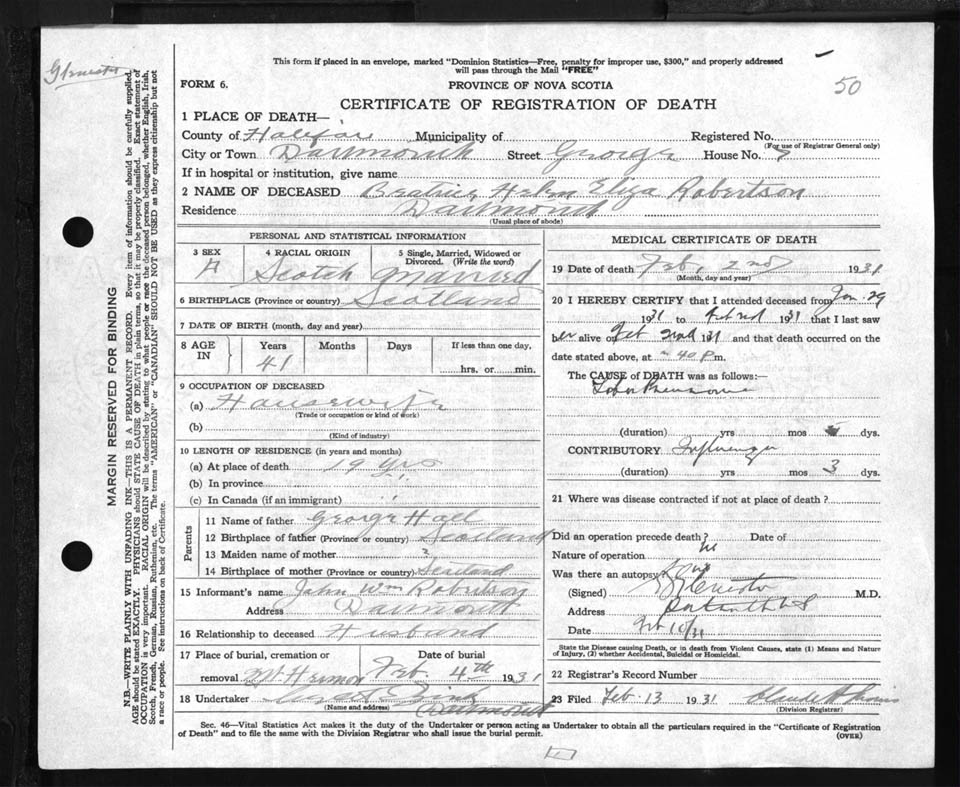 This form if placed in an envelope, marked "Dominion Statistics—Free, penalty for improper use, $300," and properly addressed
will pass through the Mail "FREE"
50
FORM 6.
PROVINCE OF NOVA SCOTIA
CERTIFICATE OF REGISTRATION OF DEATH
1 PLACE OF DEATH—
County of Halifax Municipality of Registered No.
(For use of Registrar General only)
City or Town Dartmouth Street George House No. 7
If in hospital or institution, give name
2 NAME OF DECEASED Beatrice Helen Eliza Robertson
Residence Dartmouth
(Usual place of abode)
MARGIN RESERVED FOR BINDING
N.B.—WRITE PLAINLY WITH UNFADING INK—THIS IS A PERMANENT RECORD. Every item of information should be carefully supplied.
AGE should be stated EXACTLY. PHYSICIANS should STATE CAUSE OF DEATH in plain terms, so that it may be properly classified. Exact statement of
OCCUPATION is very important. RACIAL ORIGIN will be described by stating to what people or race the deceased person belonged, whether English, Irish,
Scotch, French, German, Russian, Ruthenian, etc. The terms "AMERICAN" or "CANADIAN" SHOULD NOT BE USED as they express citizenship but not
a race or people. See instructions on back of Certificate.
PERSONAL AND STATISTICAL INFORMATION
3 SEX
F
4 RACIAL ORIGIN
Scotch
5 Single, Married, Widowed or
Divorced. (Write the word)
Married
6 BIRTHPLACE (Province or country) Scotland
7 DATE OF BIRTH (month, day and year)
8 AGE
IN
Years Months Days If less than one day,
41
hrs. or min.
9 OCCUPATION OF DECEASED
(a) Housewife
(Trade or occupation or kind of work)
(b)
(Kind of industry)
10 LENGTH OF RESIDENCE (in years and months)
(a) At place of death 19 yrs
(b) In province "
(c) In Canada (if an immigrant) "
Parents
11 Name of father George Hall
12 Birthplace of father (Province or country) Scotland
13 Maiden name of mother ?
14 Birthplace of mother (Province or country) Scotland
15 Informant's name John Wm Robertson
Address Dartmouth
16 Relationship to deceased Husband
17 Place of burial, cremation or Date of burial
removal Mt Hermon Feb 4th 1931
18 Undertaker
(Name and address) Dartmouth
MEDICAL CERTIFICATE OF DEATH
19 Date of death Feb, 2nd 1931
(Month, day and year)
20 I HEREBY CERTIFY that I attended deceased from Jan. 29
1931 to Feb 2nd 1931 that I last saw
her alive on Feb 2nd 1931 and that death occurred on the
date stated above, at 40 P.m.
The CAUSE of DEATH was as follows:—
Lobar Pneumonia
(duration) yrs mos dys.
CONTRIBUTORY Influenza
(duration) yrs mos 3 dys.
21 Where was disease contracted if not at place of death?
Did an operation precede death? No Date of
Nature of operation
Was there an autopsy?
(Signed) M.D.
Address
Date Feb 10/31
State the Disease causing Death, or in death from Violent Causes, state (1) Means and Nature
of Injury, (2) whether Accidental, Suicidal or Homicidal.
22 Registrar's Record Number
23 Filed Feb. 13 1931
(Division Registrar)
Sec. 46—Vital Statistics Act makes it the duty of the Undertaker or person acting as Undertaker to obtain all the particulars required in the "Certificate of Registration
of Death" and to file the same with the Division Registrar who shall issue the burial permit.
(OVER)